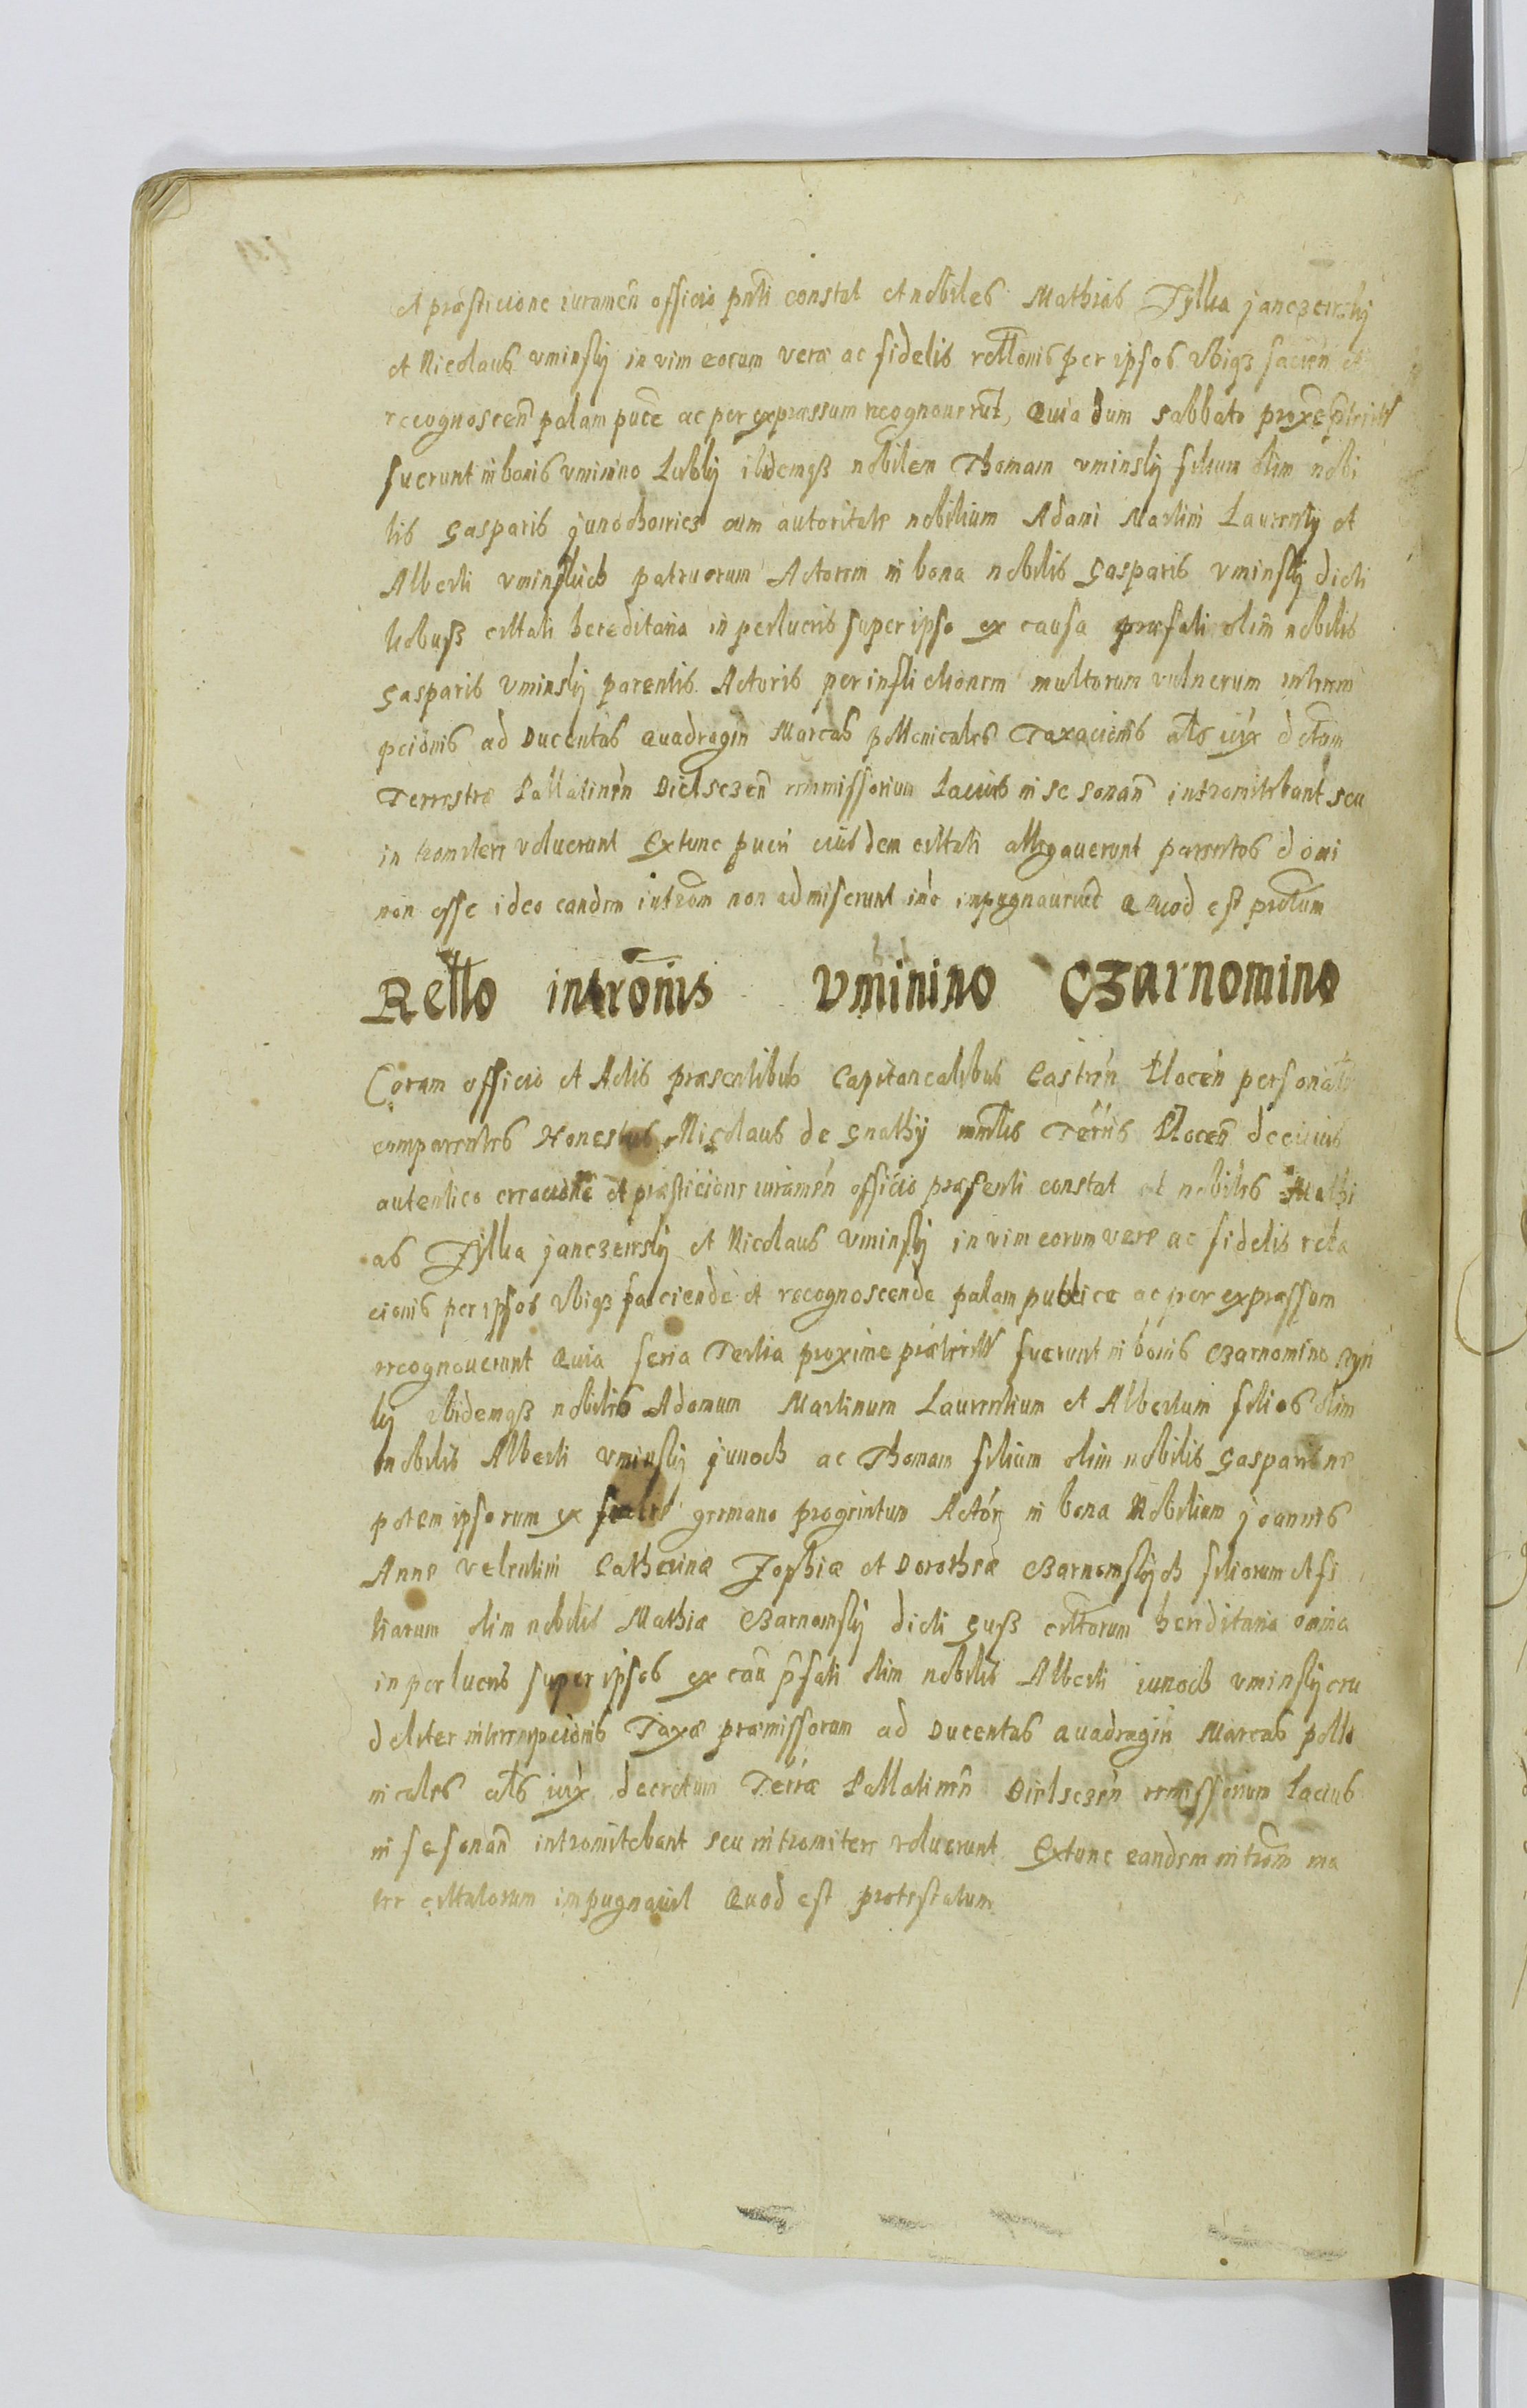 et præsticione iuramen̄ officio pn̄ti constat et nobiles Mathias Tylka janczewsky
et Nicolaus vminsky in vim eorum veræ ac fidelis rel̄tionis per ipsos vbiqз facien̄ et
recognoscen̄ palam pub̄ce ac per expræssum recognouerut̄, Quia dum sabbato proxe
fuerunt in bonis vminino Lubky ibidemqß nobilem Thomam vminsky filium olim nobi
lis Gasparis junochowicz cum autoritate nobilium Adami Martini Laurenty et
Alberti vminskich patruorum Actorem in bona nobilis Gasparis vminsky dicti
kobuß cittati hereditaria in perlucris super ipso ex causa præfati olim nobilis
Gasparis vminsky parentis Actoris per inflictionem multorum vulnerum interem
pcionis ad Ducentas Quadragin̄ Marcas pollonicales Taxacionis al̄s iux̄ dcr̄tum
Terrestræ Pallatinen̄ Bielsczen̄ remmissorium Lacius in se sonan̄ intromitebant seu
in tromitere voluerunt Extunc pueri eiusdem cittati allegauerunt parentes domi
non esse ideo eandem introm̄ non admiserunt imo impugnauerunt Quod est prot̄tum
Rel̄tio intromis̄ Vminino Czarnomino
Coram officio et Actis præsentibus Capitanealibus Castren̄ Plocen̄ personal̄r
comparentes Honestus Nicolaus de Gnathy mn̄lis Ter̄ris Plocen̄ de cuius
autentico creacione et præsticione iuramen̄ officio præsenti constat et nobiles Mathi
as Tylka janczewsky et Nicolaus vminsky in vim eorum vere ac fidelis rela
cionis per ipsos vbiqз faciende et recognoscende palam publice ac per expræssum
recognouerunt Quia feria Tertia proxime præterit fuerunt in bonis Czarnomino Ryn
ky ibidemqß nobiles Adamum Martinum Laurentium et Albertum filios olim
nobilis Alberti vminsky junoch ac Thomam filium olim nobilis Gasparis ne
potem ipsorum ex fratre germano progenitum Actor̄ in bona Nobilium joannis
Anne velentini Catherinæ Zophiæ et Dorotheæ Czarnomskych filiorum et fi
liarum olim nobilis Mathiæ Czarnomsky dicti Guß cittatorum hereditaria omnia
in perlucris super ipsos ex cau̅ p̄fati olim nobilis Alberti iunoch vminsky cru
deliter interempcionis Taxæ præmissorum ad Ducentas Quadragin̄ Marcas pollo
nicales al̄s iux̄ decretum Terræ Pallatinen̄ Bielsczen̄ remissorium Lacius
in se sonan̄ intromitebant seu intromitere voluerunt Extunc eandem introm̄ ma
ter cittatorum impugnauit Quod est protestatum